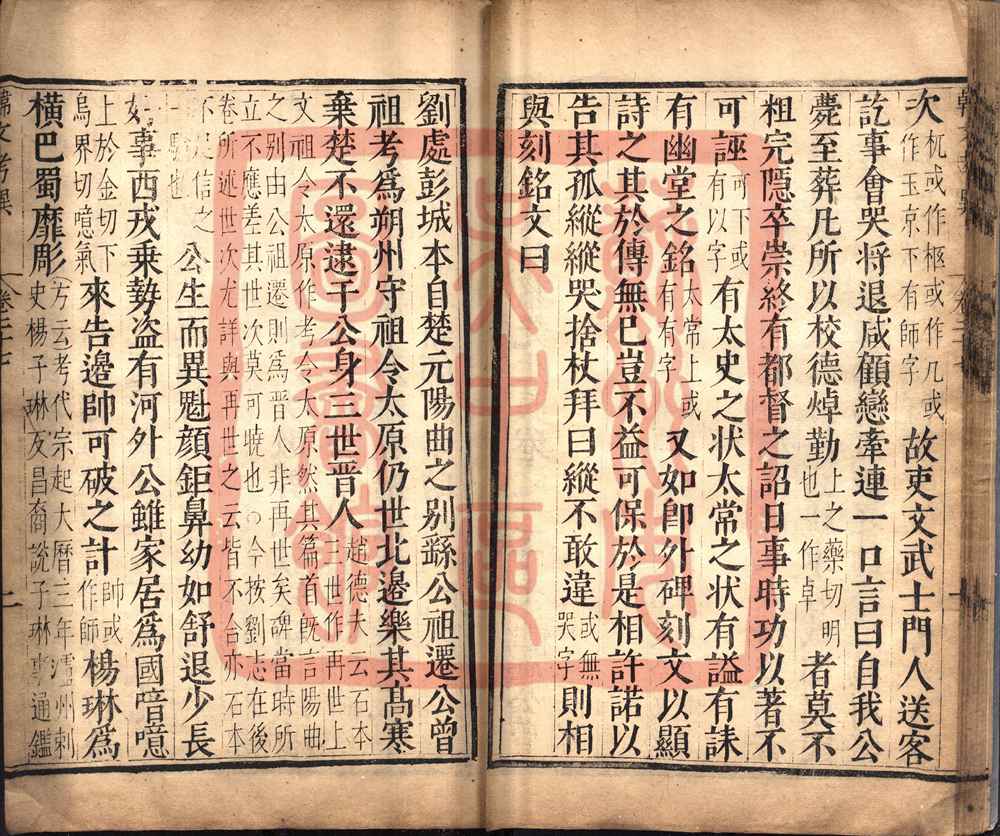 次杌或作柩或作几或作玉京下有師字故吏文武士門人送客
訖事會哭將退咸顧戀牽連一口言曰自我公
薨至葬凡所以校德焯勤上之藥切明也一作卓者莫不
粗完隱卒崇終有都督之詔日事時功以著不
可誣可下或有以字有太史之狀太常之狀有謚有誄
有幽堂之銘太常上或有有字又如卽外碑刻文以顯
詩之其於傳無已豈不益可保於是相許諾以
告其孤縱縱哭捨杖拜曰縱不敢違或無哭字則相
與刻銘文曰
劉處彭城本自楚元陽曲之別繇公祖遷公曾
祖考爲朔州守祖令太原仍世北邊樂其高寒
棄楚不還逮于公身三世晋人趙德夫云石本三世作再世上
文祖令太原作考令太原然其篇首既言陽曲之別由公祖遷則爲晋人非再世矣碑當時所
立不應差其世次莫可曉也○今按劉志在後卷所述世次尤詳與再世之云皆不合亦石本
不足信之一驗也公生而異魁顔鉅鼻幼如舒退少長
好事西戎乗勢盗有河外公雖家居爲國喑噫
上於金切下烏界切噫氣來告邊帥可破之計帥或作師楊琳爲
橫巴蜀靡彫方云考代宗起大曆三年瀘州刺史楊子琳反昌裔說子琳事通鑑
韓文考異 卷二十七